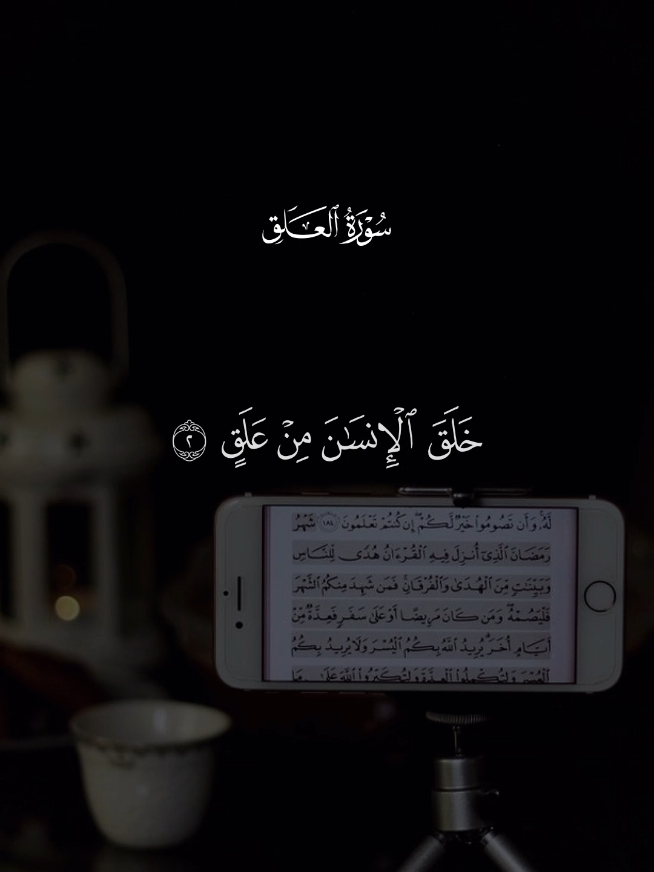 سُوْرَةُ ٱلْعَلَقِ
خَلَقَ ٱلْإِنسَـٰنَ مِنْ عَلَقٍ ٢
لَّهُۥ وَأَن تَصُومُوا۟ خَيْرٌ لَّكُمْ إِن كُنتُمْ تَعْلَمُونَ ١٨٤ شَهْرُ
رَمَضَانَ ٱلَّذِىٓ أُنزِلَ فِيهِ ٱلْقُرْءَانُ هُدًى لِّلنَّاسِ
وَبَيِّنَـٰتٍ مِّنَ ٱلْهُدَىٰ وَٱلْفُرْقَانِ فَمَن شَهِدَ مِنكُمُ ٱلشَّهْرَ
فَلْيَصُمْهُ وَمَن كَانَ مَرِيضًا أَوْ عَلَىٰ سَفَرٍ فَعِدَّةٌ مِّنْ
أَيَّامٍ أُخَرَ يُرِيدُ ٱللَّهُ بِكُمُ ٱلْيُسْرَ وَلَا يُرِيدُ بِكُمُ
ٱلْعُسْرَ وَلِتُكْمِلُوا۟ ٱلْعِدَّةَ وَلِتُكَبِّرُوا۟ ٱللَّهَ عَلَىٰ مَا